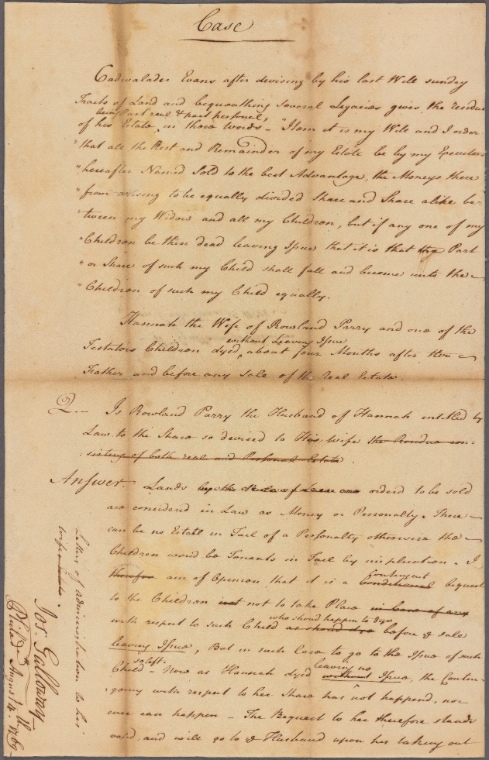 Case
Cadwalader Evans after devising by his last Will sunday
Tracts of Land and bequeathing several Legacies gives the residue
being part real & part personal,
of his Estate in these words – "Item it is my Will and I order
"that all the Rest and Remainder of my Estate be by my Executors
"hereafter Named Sold to the best Advantage, the Moneys there
"from arising to be equally divided Share and Share alike be-
"tween my Widow and all my Children, but if any one of my
"Children be then dead leaving Issue that it is that the Part
"or Share of such my Child shall fall and become unto the
"Children of such my Child equally.
Hannah the Wife of Rowland Parry and one of the
without Leaving Issue
Testators Children dyed, about four Months after the
Father and before any Sale of the Real Estate
Q.– Is Rowland Parry the Husband of Hannah entitled by
Law to the Share so devised to His wife the Residue con-
sisting of both real and Personal Estate
Answer Lands by the orderd to be sold
are considerd in Law as Money or Personalty. There
can be no Estate in Tail of a Personalty otherwise the
Children would be Tenants in Tail by implication. I
contingent
therefore am of Opinion that it is a conditional Bequest
to the Children not to take Place in Case of any
who should happen to dye
with respect to such Child as should dye before & sale
leaving Issue, But in such Case to go to the Issue of such
so left.
leaving no
Child – Now as Hannah dyed without Issue, the Contin-
gency with respect to her Share has not happend, nor
ever can happen – The Bequest to her therefore stands
valid, and will go to & Husband upon his taking out
Letters of administration to his
wife
Jos. Galloway
Philad. August 14th 1769